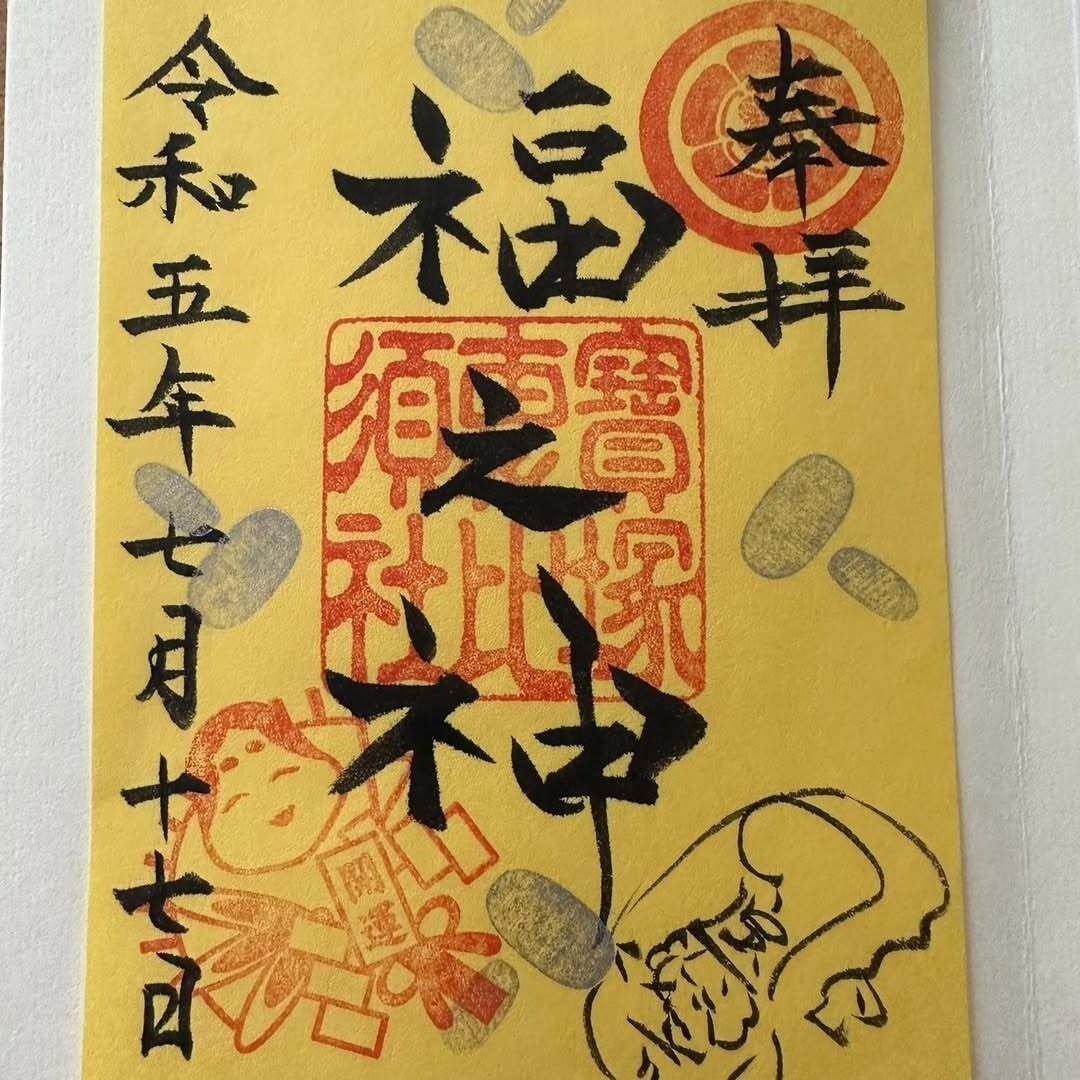 奉拝
福之神
寶塚
恵比
須社
開運
令和五年七月十七日